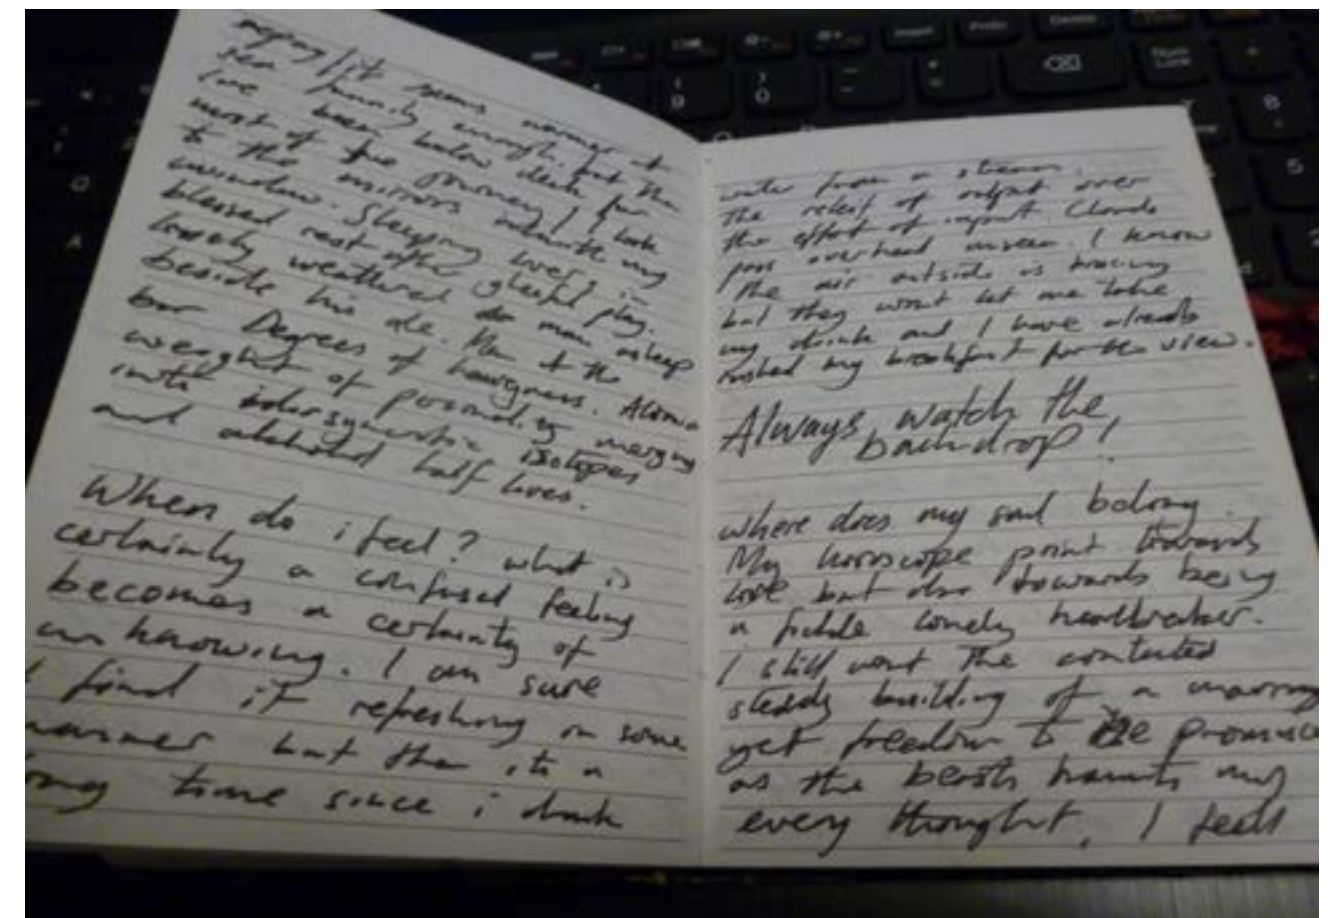 it seems warmer at
sea funnily enough, but then
I've been below deck for
most of the journey / I look
to the mirrors outwith my
window. Sleeping lovers in
blessed rest after gleeful play.
lonely weathered man asleep
beside his ale. Man at the
bar Degrees of hungriness. Atomic
weight of personality merging
into idiosyncratic isotopes
and alcohol half lives.
When do i feel? what is
certainly a confused feeling
becomes a certainty of
un knowing. I am sure
I find it refreshing in some
manner but then its a
long time since i drank
water from a stream.
The relief of output over
the effort of input Clouds
pass overhead unseen. I know
the air outside is bracing
but they wont let me take
my drink and I have already
rushed my breakfast for the view.
Always watch the
backdrop!
where does my soul belong.
My horoscope point towards
love but also towards being
a fickle lonely heartbreaker.
I still want the contented
steady building of a marriag
yet freedom to be promisc
as the beasts haunts my
every thought, I feel